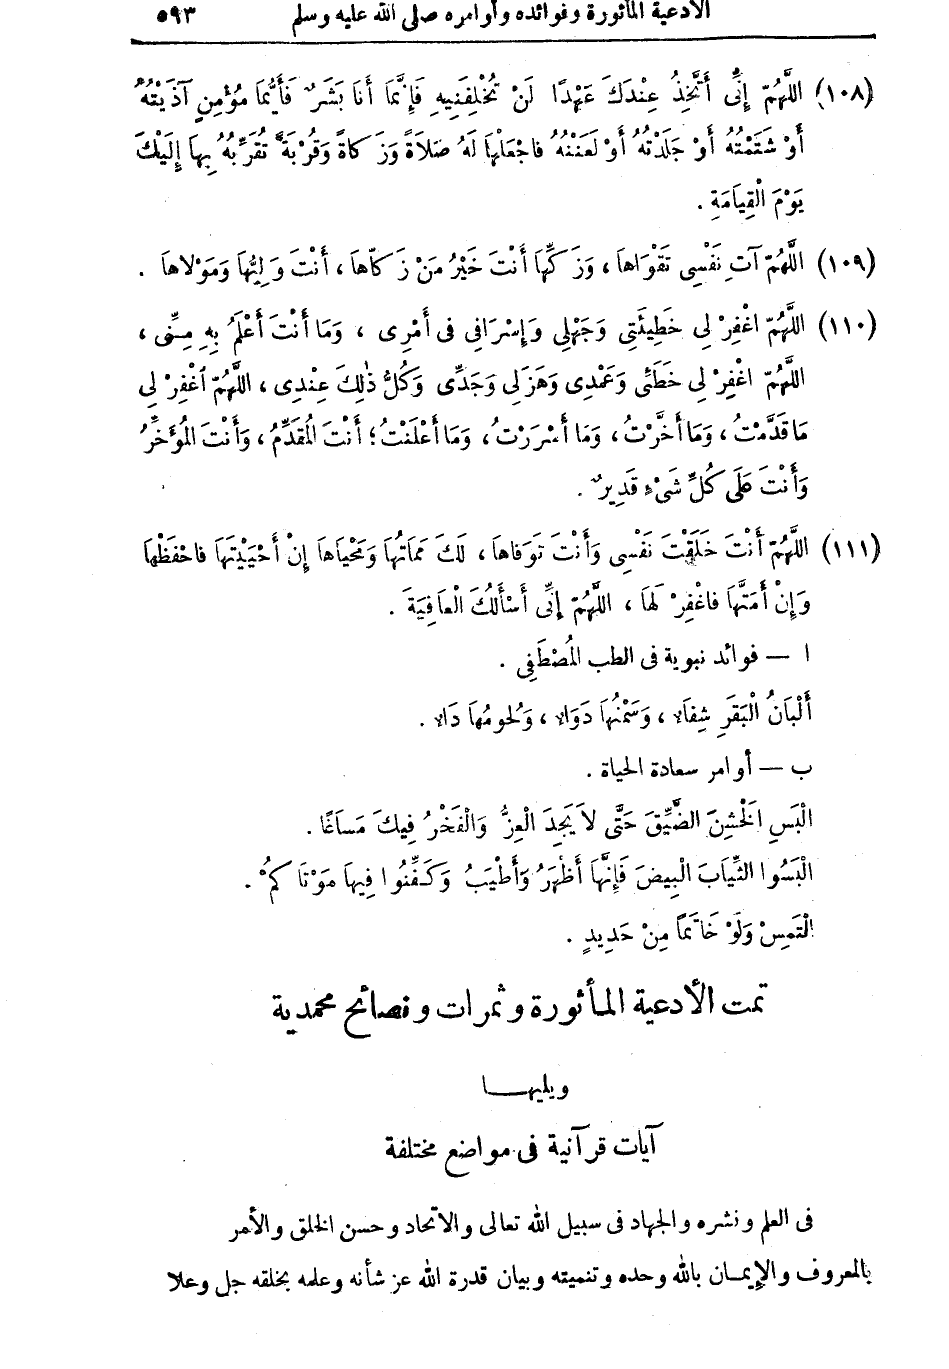 الأدعية المأثورة وفوائده وأوامره صلى الله عليه وسلم ٥٩٣
(١٠٨) اللَّهُمّ إِنِّى أَتَّخِذُ عِنْدَكَ عَهْدًا لَنْ تُخْلِفَنِيهِ فَإِنَّمَا أَنَا بَشَرٌ فَأَيُّمَا مُؤْمِنٍ آذَيْتُهُ
أَوْ شَتَمْتُهُ أَوْ جَلَدْتُهُ أَوْ لَعَنْتُهُ فاجْعَلْهَا لَهُ صَلَاةً وَزَكاةً وَقُرْبَةً تُقَرِّبُهُ بِهَا إِلَيْكَ
يَوْمَ الْقِيَامَةِ .
(١٠٩) اللَّهُمّ آتِ نَفْسِى تَقْوَاهَا ، وَزَكِّهَا أَنْتَ خَيْرُ مَنْ زَكاّهَا ، أَنْتَ وَلِيُّهَا وَمَوْلَاهَا .
(١١٠) اللَّهُمّ اغْفِرْ لِى خَطِيئَتِى وَجَهْلِى وَإِسْرَافِى فِى أَمْرِى ، وَمَا أَنْتَ أَعْلَمُ بِهِ مِنِّى ،
اللَّهُمّ اغْفِرْ لِى خَطَئِى وَعَمْدِى وَهَزَلِى وَجَدِّى وَكُلُّ ذٰلِكَ عِنْدِى ، اللَّهُمّ اغْفِرْ لِى
مَا قَدَّمْتُ ، وَمَا أَخَّرْتُ ، وَمَا أَسْرَرْتُ ، وَمَا أَعْلَنْتُ ؛ أَنْتَ الْمُقَدِّمُ ، وَأَنْتَ الْمُؤَخِّرُ
وَأَنْتَ عَلَى كُلِّ شَىْءٍ قَدِيرٌ .
(١١١) اللَّهُمّ أَنْتَ خَلَقْتَ نَفْسِى وَأَنْتَ تَوَفَّاهَا ، لَكَ مَمَاتُهَا وَمَحْيَاهَا إِنْ أَحْيَيْتَهَا فاحْفَظْهَا
وَإِنْ أَمَتَّهَا فاغْفِرْ لَهَا ، اللَّهُمّ إِنِّى أَسْأَلُكَ الْعَافِيَةَ .
ا — فوائد نبوية فى الطب المُصْطَفِى .
أَلْبَانُ الْبَقَرِ شِفَاءٌ ، وَسَمْنُهَا دَوَاءٌ ، وَلُحُومُهَا دَاءٌ .
ب — أوامر سعادة الحياة .
الْبَسِ الْخَشِنَ الضَّيِّقَ حَتَّى لاَ يَجِدَ الْعِزُّ وَالْفَخْرُ فِيكَ مَسَاغًا .
الْبَسُوا الثِّيَابَ الْبِيضَ فَإِنَّهَا أَطْهَرُ وَأَطْيَبُ وَكَفِّنُوا فِيهَا مَوْتَاكُمْ .
الْتَمِسْ وَلَوْ خَاتَمًا مِنْ حَدِيدٍ .
تمت الأدعية المأثورة وثمرات ونصائح محمدية
ويليهـــا
آيات قرآنية فى مواضع مختلفة
فى العلم ونشره والجهاد فى سبيل الله تعالى والاتحاد وحسن الخلق والأمر
بالمعروف والإيمــان بالله وحده وتنميته وبيان قدرة الله عز شأنه وعلمه بخلقه جل وعلا